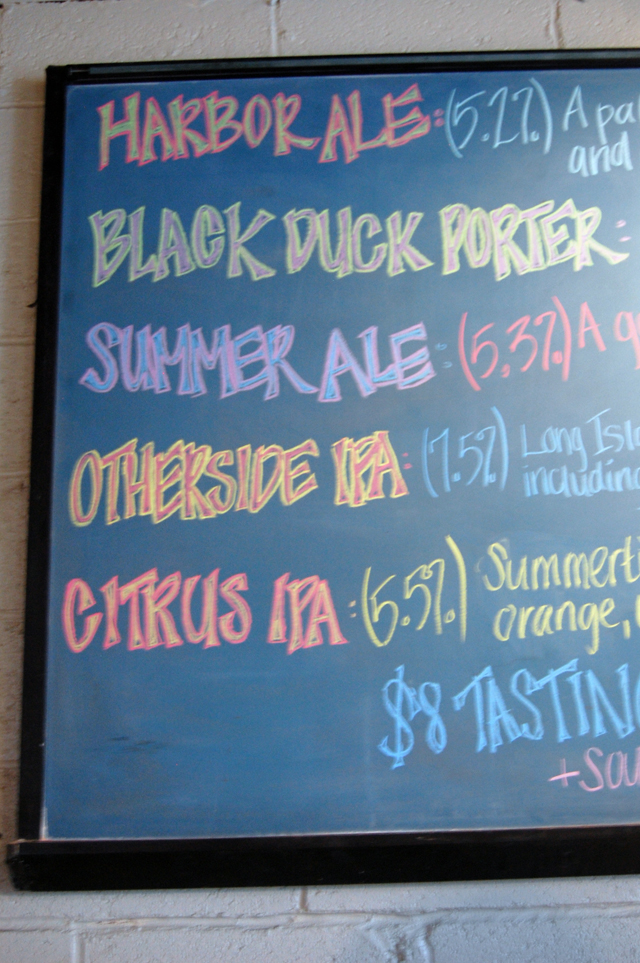 HARBOR ALE: (5.2%) A pal
and
BLACK DUCK PORTER:
SUMMER ALE: (5.3%) A
OTHERSIDE IPA: (7.5%) Long Isl
including
CITRUS IPA: (5.5%) Summerti
orange,
$8 TASTING
+ Sou